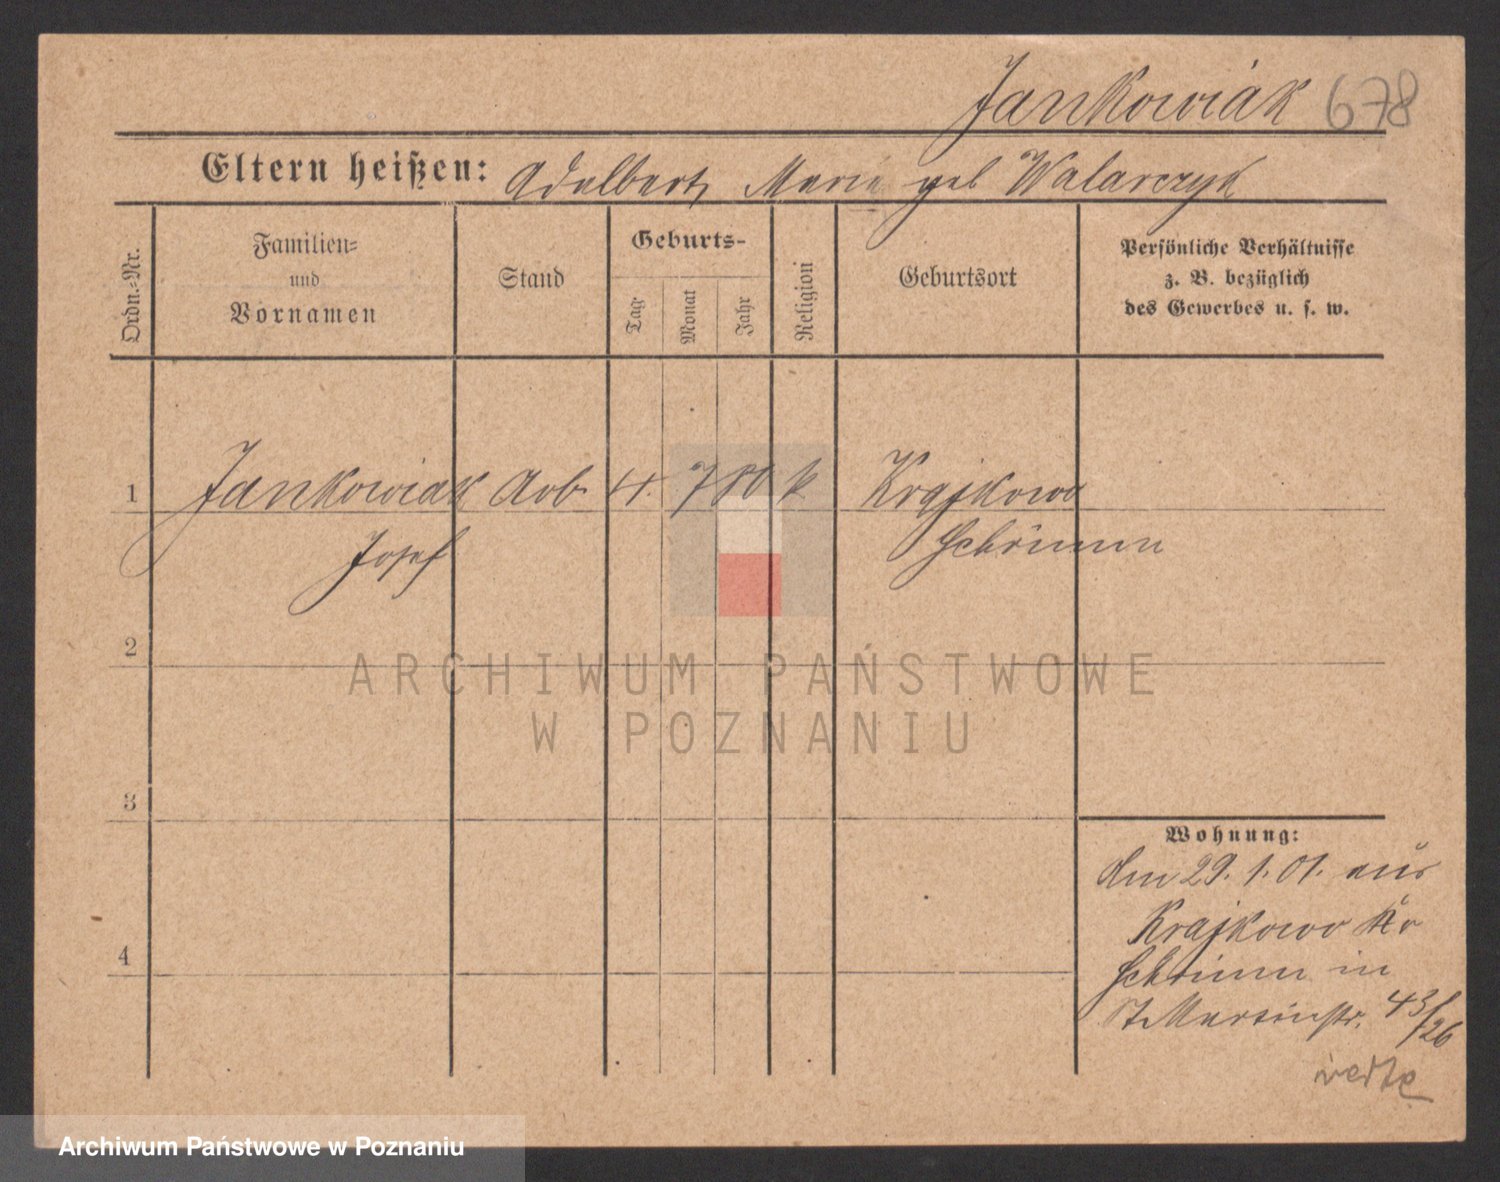 Jankowiak 678
Eltern heißen: Adalbert, Marie geb Walarczyk
Ordn.-Nr.
Familien-
und
Vornamen
Stand
Geburts-
Tag
Monat
Jahr
Religion
Geburtsort
Persönliche Verhältnisse
z. B. bezüglich
des Gewerbes u. s. w.
1 Jankowiak Arb 4. 7 80 k Krajkowo
Josef Schrimm
2
ARCHIWUM PAŃSTWOWE
W POZNANIU
3
Wohnung:
den 29. 1. 01. aus
Krajkowo Kr
4
Schrimm in
St. Martinstr. 43/26
Archiwum Państwowe w Poznaniu